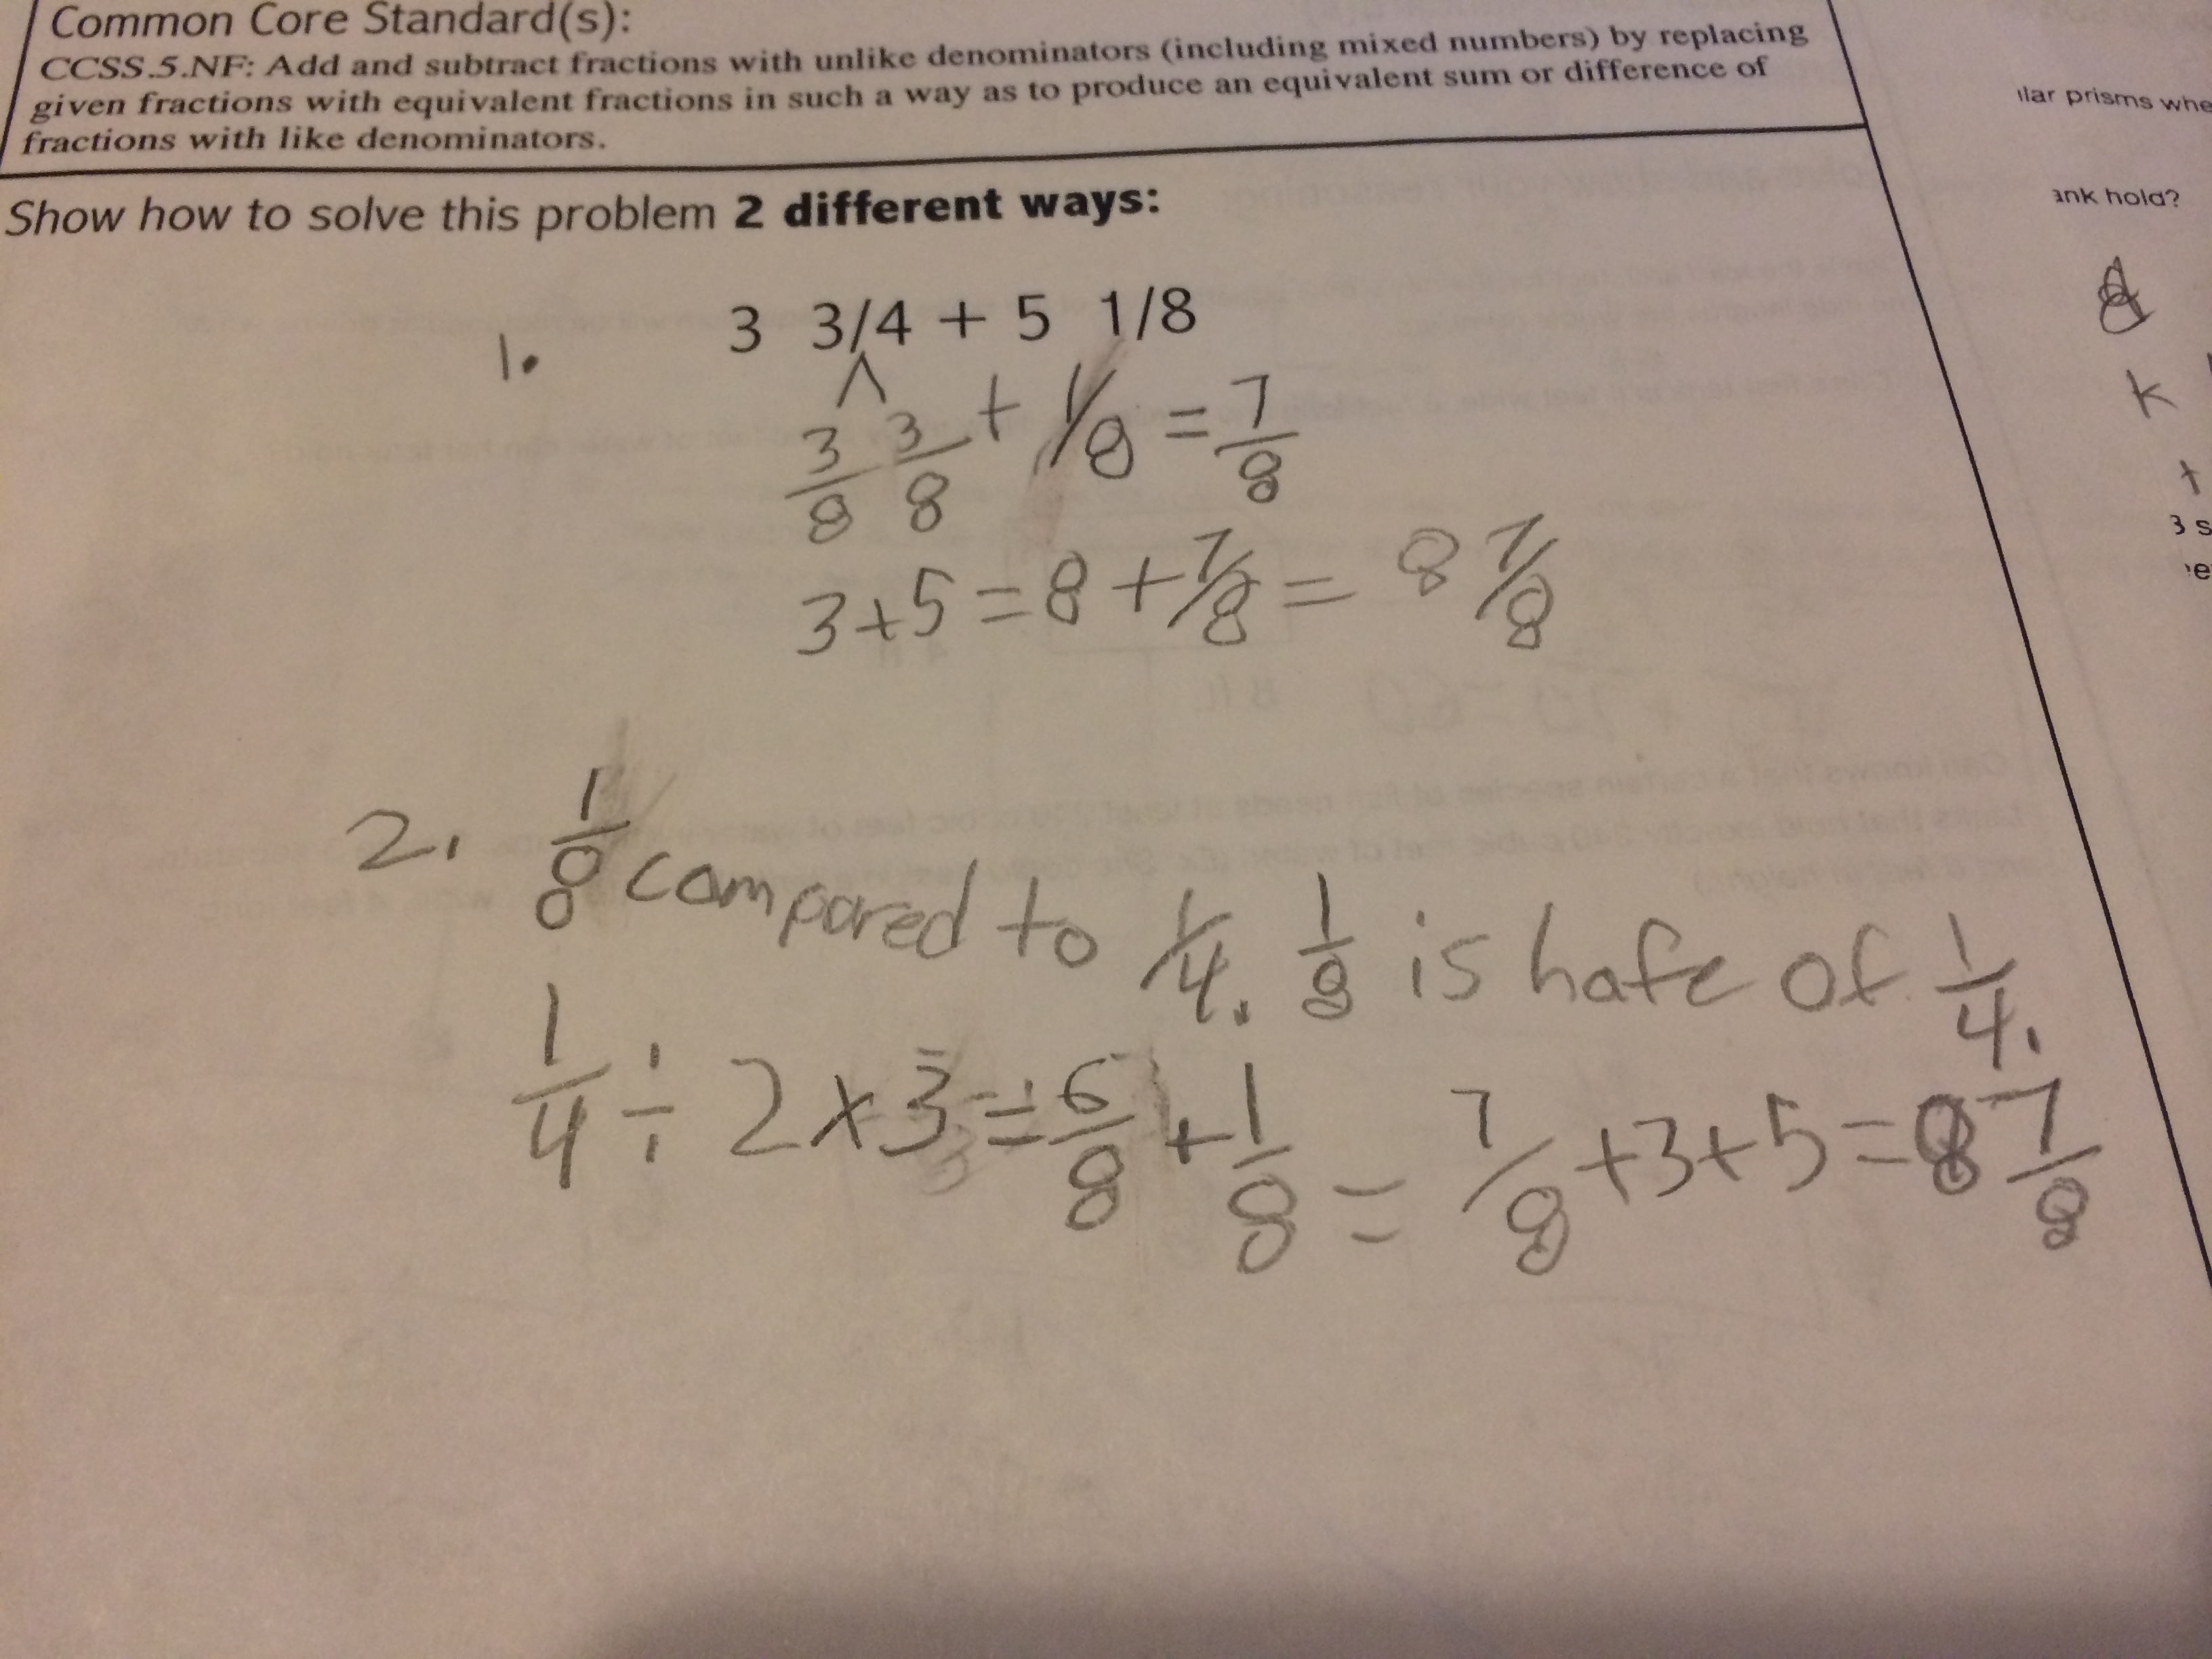 Common Core Standard(s):
CCSS.5.NF: Add and subtract fractions with unlike denominators (including mixed numbers) by replacing
given fractions with equivalent fractions in such a way as to produce an equivalent sum or difference of
fractions with like denominators.
Show how to solve this problem 2 different ways:
3 3/4 + 5 1/8
1.
3/8 3/8 + 1/8 = 7/8
3+5=8+7/8= 8 7/8
2. 1/8 compared to 1/4. 1/8 is hafe of 1/4.
1/4 ÷ 2 x 3 = 6/8 + 1/8 = 7/8 +3+5=8 7/8
ilar prisms whe
ank hold?
k